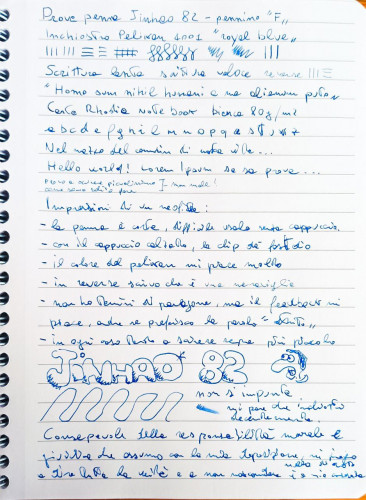 Prove penna Jinhao 82 - pennino "F"
Inchiostro Pelikan 4001 "royal blue"
Scrittura lenta scrittura veloce reverse
"Homo sum nihil humani a me alienum puto"
Carta Rhodia Notebook bianca 80g/m2
a b c d e f g h i l m n o p q r s t u v z
Nel mezzo del cammin di nostra vita...
Hello world! Lorem Ipsum se sa prova...
Impressioni di un neofita:
- la penna è corta, difficile usarla senza cappuccio.
- con il cappuccio calzato, la clip dà fastidio
- il colore del pelikan mi piace molto
- in reverse scrivo che è una meraviglia
- non ho termini di paragone, ma il feedback mi
piace, anche se preferisco la parola "attrito"
- in ogni caso tendo a scrivere sempre più piccolo
JINHAO 82
non si impunta
mi pare che l'inchiostro
Consapevole della responsabilità morale e
giuridica che assumo con la mia deposizione, mi impegno
a dire tutta la verità e a non nascondere